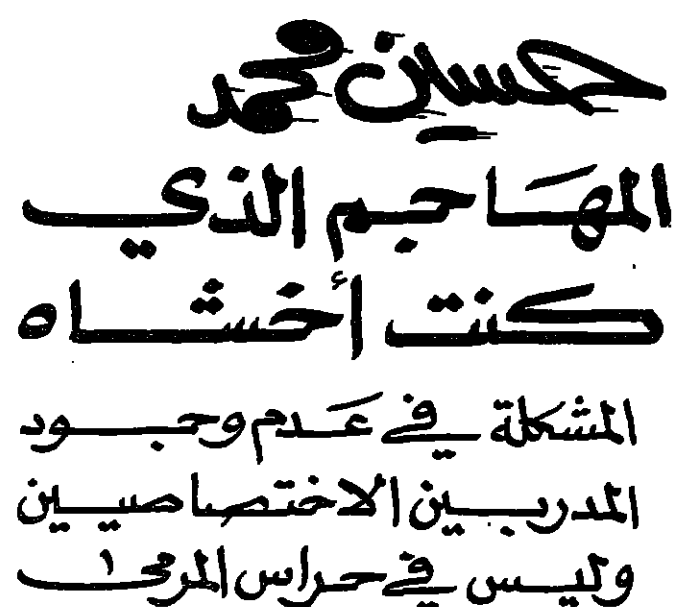 حسين محمد
المهَاجم الذي
كنت أخشاه
المشكلة في عَدم وجود
المدربين الاختصاصيين
وليس في حراس المرمى !